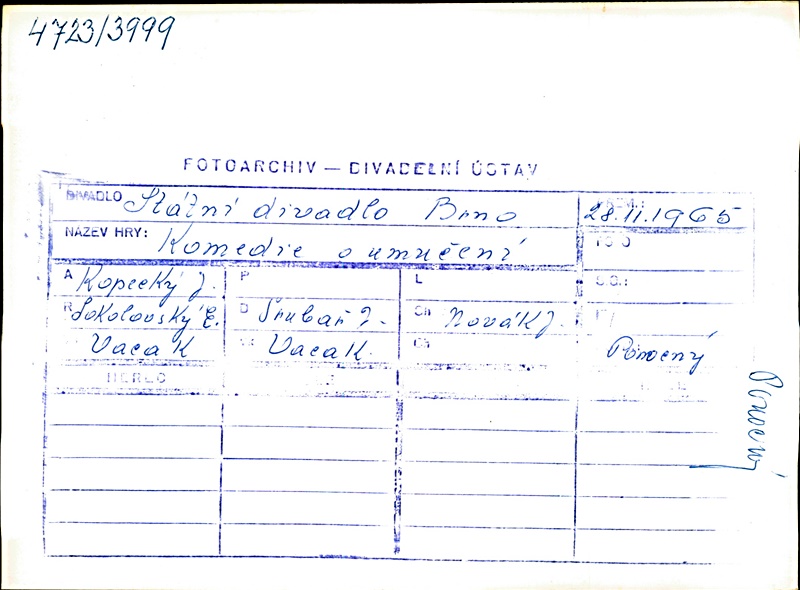 4723/3999
FOTOARCHIV — DIVADELNÍ ÚSTAV
DIVADLO Státní divadlo Brno 28.11.1965
NÁZEV HRY: Komedie o umučení
A Kopecký J. P L
R Sokolovský E. D Šrubař J. Ch Novák J.
Vaca K Vaca K. Ch Ponocný
Ponocný